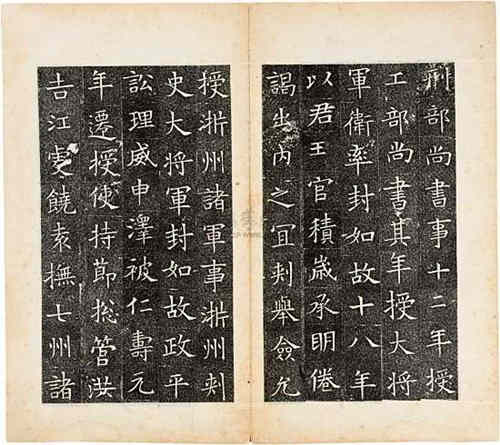 刑部尚書事十二年授
工部尚書其年授大將
軍衛率封如故十八年
以君王官積歲承明倦
謁出內之冝刾舉僉允
授淅州諸軍事淅州刾
史大將軍封如故政平
訟理威申澤被仁壽元
年遷授使持節揔管洪
吉江虔饒袁撫七州諸